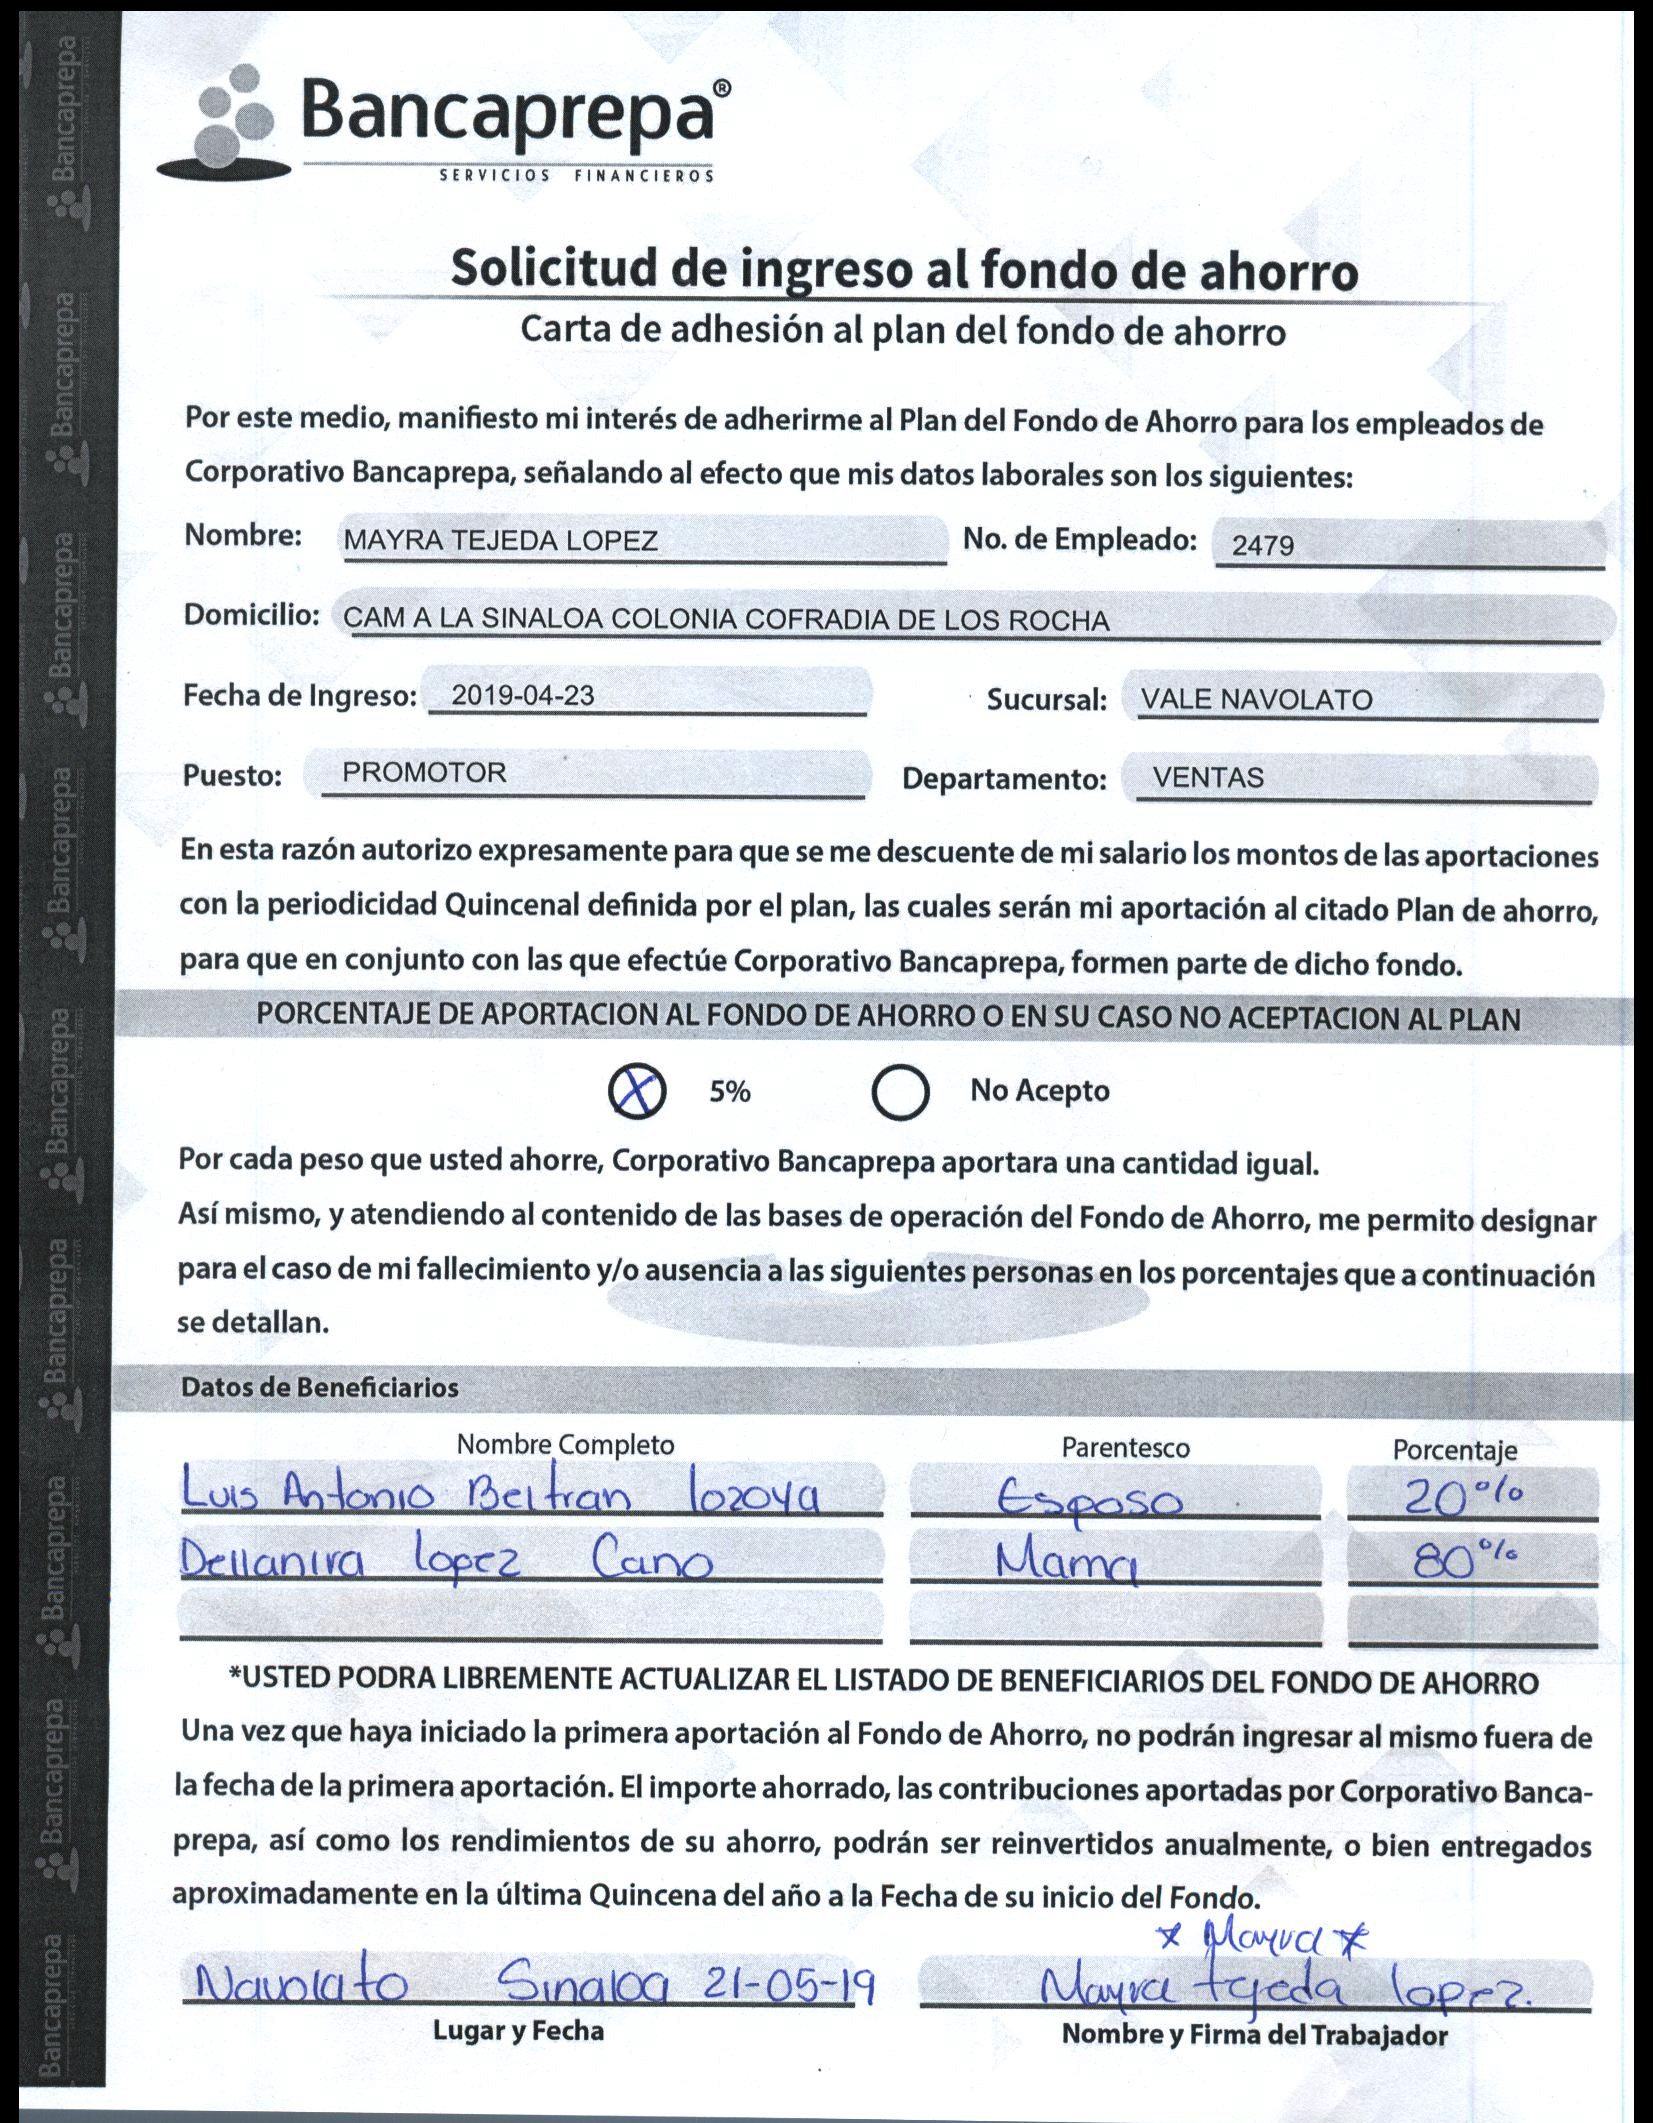 Bancaprepa®
SERVICIOS FINANCIEROS
Solicitud de ingreso al fondo de ahorro
Carta de adhesión al plan del fondo de ahorro
Por este medio, manifiesto mi interés de adherirme al Plan del Fondo de Ahorro para los empleados de
Corporativo Bancaprepa, señalando al efecto que mis datos laborales son los siguientes:
Nombre: MAYRA TEJEDA LOPEZ No. de Empleado: 2479
Domicilio: CAM A LA SINALOA COLONIA COFRADIA DE LOS ROCHA
Fecha de Ingreso: 2019-04-23 Sucursal: VALE NAVOLATO
Puesto: PROMOTOR Departamento: VENTAS
En esta razón autorizo expresamente para que se me descuente de mi salario los montos de las aportaciones
con la periodicidad Quincenal definida por el plan, las cuales serán mi aportación al citado Plan de ahorro,
para que en conjunto con las que efectúe Corporativo Bancaprepa, formen parte de dicho fondo.
PORCENTAJE DE APORTACION AL FONDO DE AHORRO O EN SU CASO NO ACEPTACION AL PLAN
X 5% No Acepto
Por cada peso que usted ahorre, Corporativo Bancaprepa aportara una cantidad igual.
Así mismo, y atendiendo al contenido de las bases de operación del Fondo de Ahorro, me permito designar
para el caso de mi fallecimiento y/o ausencia a las siguientes personas en los porcentajes que a continuación
se detallan.
Datos de Beneficiarios
Nombre Completo Parentesco Porcentaje
Luis Antonio Beltran lozoya Esposo 20%
Dellanira lopez Cano Mama 80%
*USTED PODRA LIBREMENTE ACTUALIZAR EL LISTADO DE BENEFICIARIOS DEL FONDO DE AHORRO
Una vez que haya iniciado la primera aportación al Fondo de Ahorro, no podrán ingresar al mismo fuera de
la fecha de la primera aportación. El importe ahorrado, las contribuciones aportadas por Corporativo Banca-
prepa, así como los rendimientos de su ahorro, podrán ser reinvertidos anualmente, o bien entregados
aproximadamente en la última Quincena del año a la Fecha de su inicio del Fondo.
* Mayra *
Navolato Sinaloa 21-05-19 Mayra tejeda lopez.
Lugar y Fecha Nombre y Firma del Trabajador
Bancaprepa
Bancaprepa
Bancaprepa
Bancaprepa
Bancaprepa
Bancaprepa
Bancaprepa
Bancaprepa
Bancaprepa